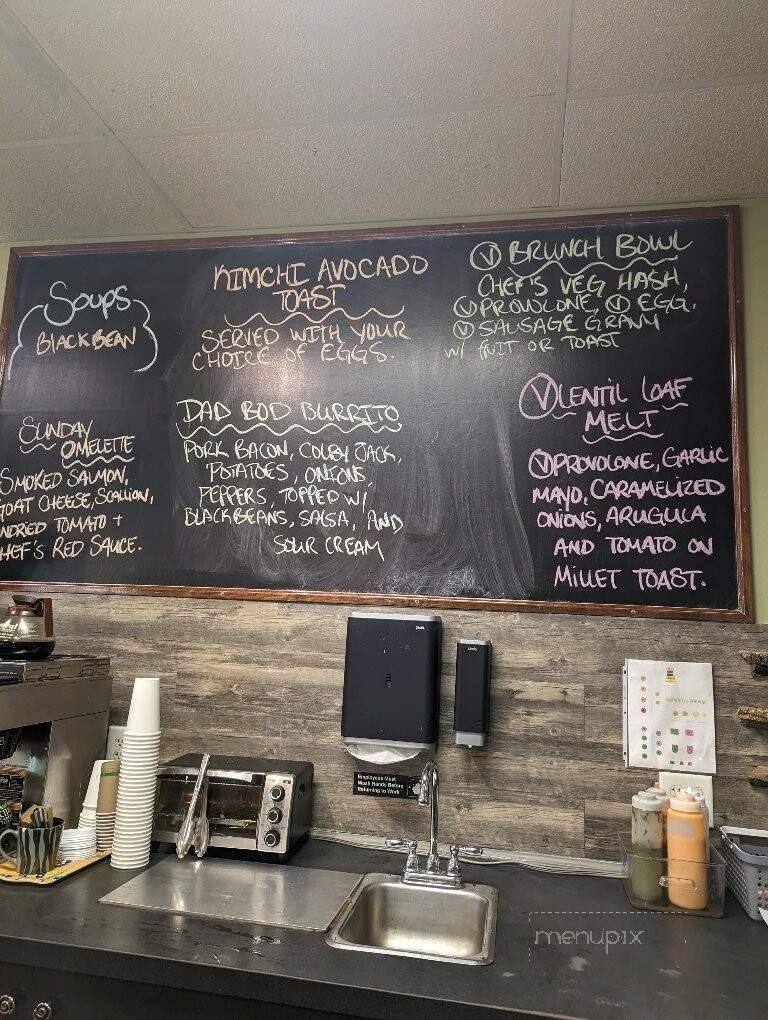 Soups
BLACK BEAN
SUNDAY
OMELETTE
SMOKED SALMON,
OAT CHEESE, SCALLION,
NDRIED TOMATO +
HEF'S RED SAUCE.
KIMCHI AVOCADO
TOAST
SERVED WITH YOUR
CHOICE OF EGGS.
DAD BOD BURRITO
PORK BACON, COLBY JACK,
POTATOES, ONIONS,
PEPPERS, TOPPED W/
BLACK BEANS, SALSA, AND
SOUR CREAM
Ⓥ BRUNCH BOWL
CHEF'S VEG HASH,
Ⓥ PROVOLONE, Ⓥ EGG,
Ⓥ SAUSAGE GRAVY
W/ FRUIT OR TOAST
Ⓥ LENTIL LOAF
MELT
Ⓥ PROVOLONE, GARLIC
MAYO, CARAMELIZED
ONIONS, ARUGULA
AND TOMATO ON
MILLET TOAST.
Employees Must
Wash Hands Before
Returning to Work
menupix